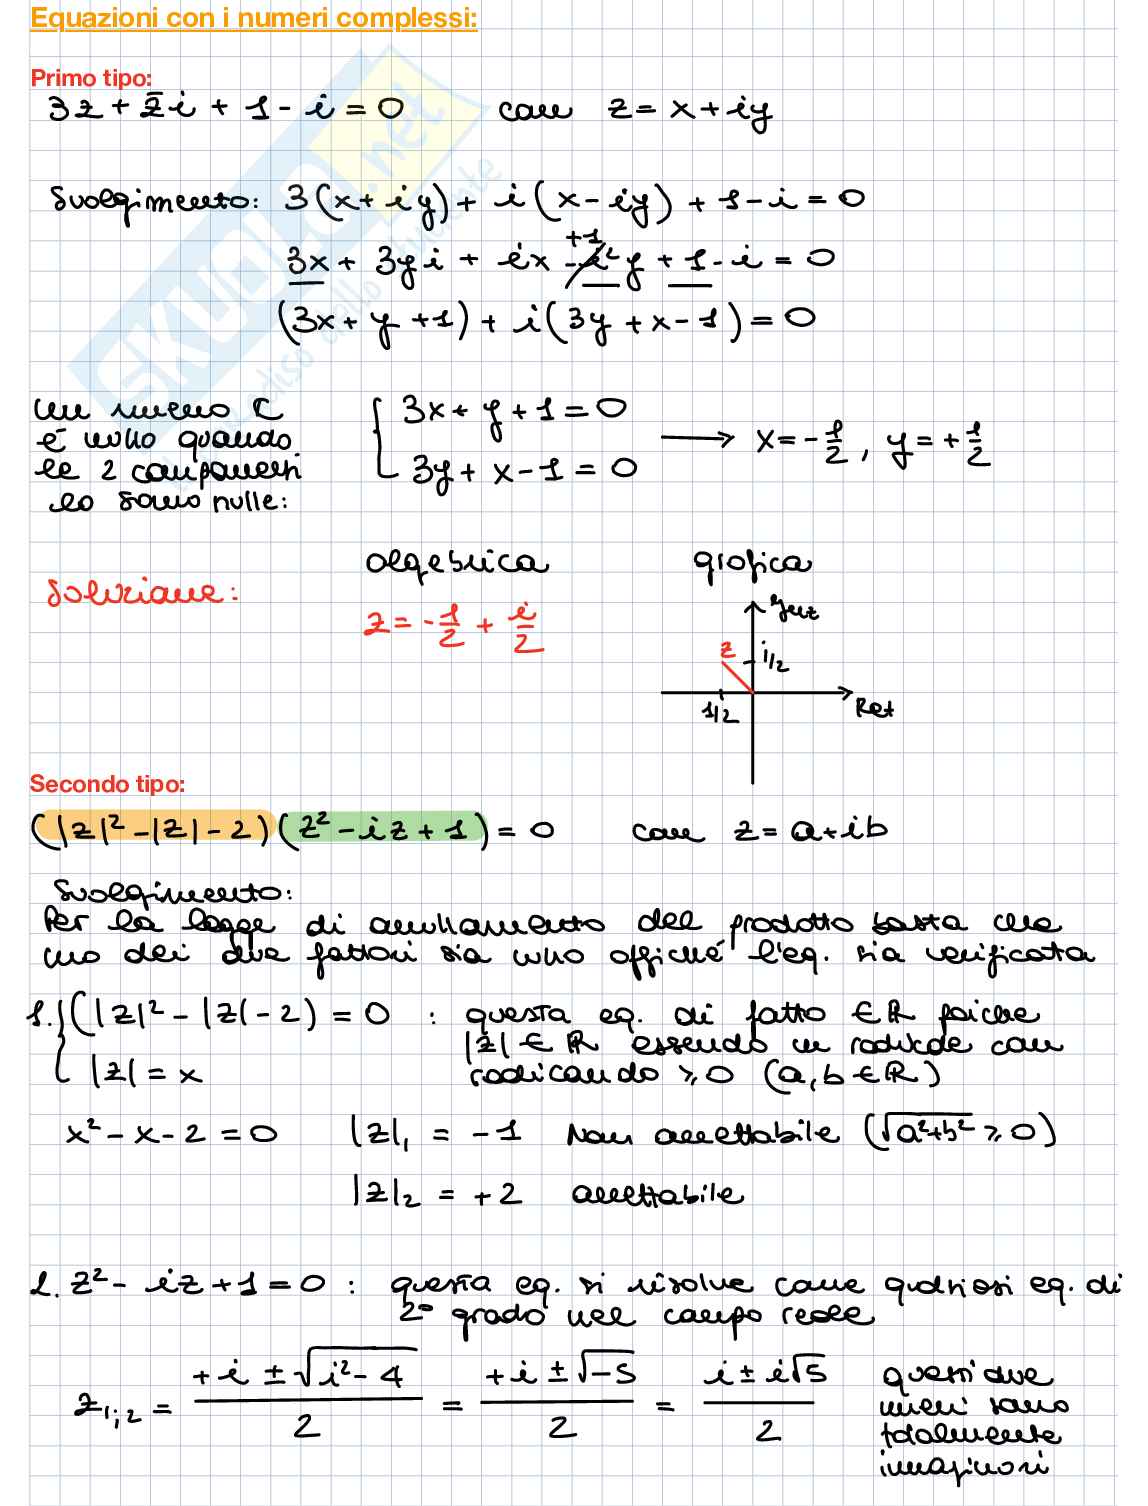 Equazioni con i numeri complessi:
Primo tipo:
3z + z̄i + 1 - i = 0 con z = x + iy
Svolgimento: 3(x + iy) + i(x - iy) + 1 - i = 0
+1
3x + 3yi + ix - i²y + 1 - i = 0
(3x + y + 1) + i(3y + x - 1) = 0
un numero ℂ
é nullo quando
le 2 componenti
lo sono nulle:
{ 3x + y + 1 = 0
3y + x - 1 = 0
→ x = -1/2, y = +1/2
Soluzione:
algebrica
z = -1/2 + i/2
grafica
Imz
z
i/2
1/2
Rez
Secondo tipo:
(|z|² - |z| - 2)(z² - iz + 1) = 0 con z = a + ib
Svolgimento:
Per la legge di annullamento del prodotto basta che
uno dei due fattori sia nullo affiché l'eq. sia verificata
1. { (|z|² - |z| - 2) = 0 : questa eq. di fatto ∈ ℝ poiche
|z| ∈ ℝ essendo un radicale con
|z| = x radicando ⩾ 0 (a, b ∈ ℝ)
x² - x - 2 = 0 |z|₁ = -1 Non accettabile (√a²+b² ⩾ 0)
|z|₂ = +2 accettabile
2. z² - iz + 1 = 0 : questa eq. si risolve come qualsiasi eq. di
2° grado nel campo reale
z₁;₂ = (+i ± √i² - 4)/2 = (+i ± √-5)/2 = (i ± i√5)/2
questi due
numeri sono
totalmente
immaginari
SKUOLA.net